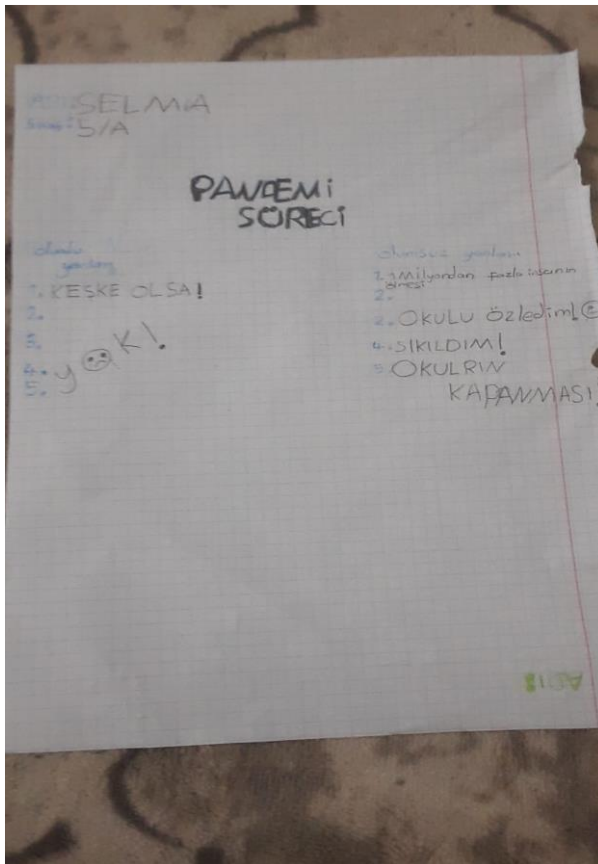 ADI: SELMA
Sınıf: 5/A
PANDEMİ
SÜRECİ
olumlu
yanları
1. KEŞKE OLSA!
2.
3.
4. y☹k!
5.
olumsuz yanları
1. 1 Milyardan fazla insanın
ölmesi
2.
2. OKULU özledim!☹
4. SIKILDIM!
5. OKULRIN
KAPANMASI